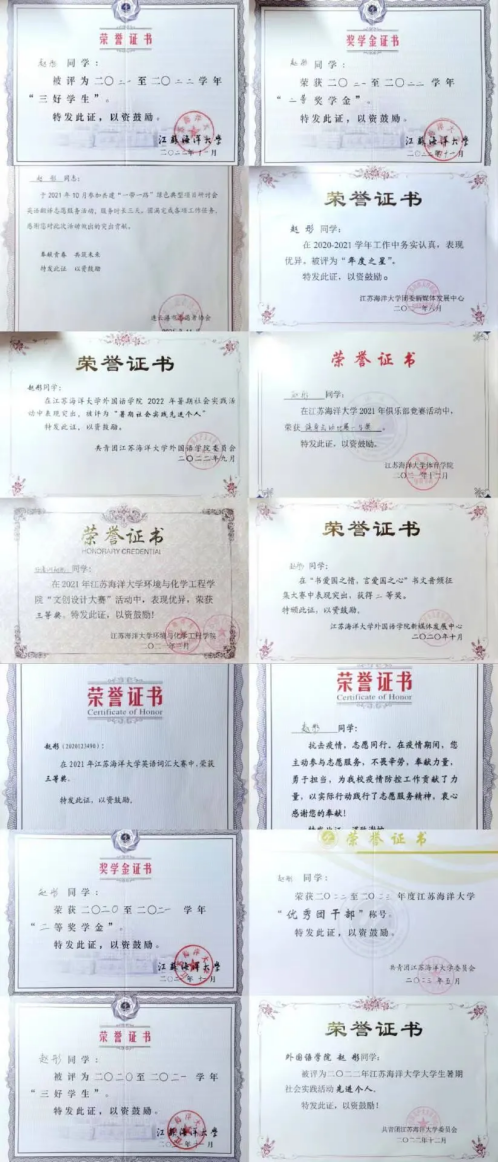 荣誉证书
赵彤 同学：
被评为二〇二一至二〇二二学年
“三好学生”。
特发此证，以资鼓励。
江苏海洋大学
二〇二二年十一月
奖学金证书
赵彤 同学：
荣获二〇二一至二〇二二学年
“二等奖学金”。
特发此证，以资鼓励。
江苏海洋大学
二〇二二年十一月
赵彤 同志：
于2021年10月参加共建“一带一路”绿色典型项目研讨会
感谢您对此次活动做出的突出贡献。
奉献青春 共筑未来
特发此证 以资鼓励
荣誉证书
赵彤 同学：
在 2020-2021 学年工作中务实认真，表现
优异，被评为“年度之星”。
特发此证，以资鼓励。
江苏海洋大学团委新媒体发展中心
荣誉证书
赵彤同学：
在江苏海洋大学外国语学院 2022 年暑期社会实践活
动中表现突出，被评为“暑期社会实践先进个人”
特发此证，以资鼓励。
共青团江苏海洋大学外国语学院委员会
二〇二二年九月
荣誉证书
赵彤 同学：
在江苏海洋大学2021年俱乐部竞赛活动中，
荣获
特发此证，以资鼓励。
江苏海洋大学体育学院
二〇二一年十二月
荣誉证书
HONORARY CREDENTIAL
同学：
在 2021 年江苏海洋大学环境与化学工程学
院“文创设计大赛”活动中，表现优异，荣获
三等奖，特发此证，以资鼓励！
江苏海洋大学环境与化学工程学院
荣誉证书
赵彤 同学：
在“书爱国之情，言爱国之心”书文音频征
集大赛中表现突出，获得二等奖。
特颁此证，以资鼓励。
江苏海洋大学外国语学院新媒体发展中心
二〇二〇年十月
荣誉证书
Certificate of Honor
赵彤（2020123490）：
在 2021 年江苏海洋大学英语词汇大赛中，荣获
三等奖。
特发此证，以资鼓励。
荣誉证书
Certificate of Honor
赵彤 同学：
抗击疫情，志愿同行。在疫情期间，您
主动参与志愿服务，不畏辛劳，奉献力量，
勇于担当，为我校疫情防控工作贡献了力
量，以实际行动践行了志愿服务精神，衷心
感谢您的奉献！
奖学金证书
赵彤 同学：
荣获二〇二〇至二〇二一学年
“二等奖学金”。
特发此证，以资鼓励。
江苏海洋大学
二〇二一年十一月
荣誉证书
赵彤 同学：
荣获二〇二二至二〇二三年度江苏海洋大学
“优秀团干部”称号。
特发此证，以资鼓励。
共青团江苏海洋大学委员会
二〇二三年五月
荣誉证书
赵彤 同学：
被评为二〇二〇至二〇二一学年
“三好学生”。
特发此证，以资鼓励。
江苏海洋大学
二〇二一年十一月
荣誉证书
外国语学院 赵彤同学：
被评为二〇二二年江苏海洋大学大学生暑期
社会实践活动先进个人。
特发此证，以资鼓励！
共青团江苏海洋大学委员会
二〇二二年十二月